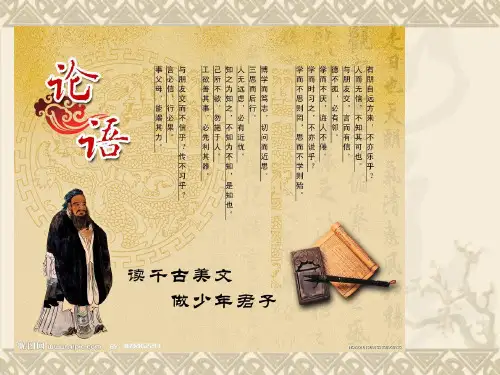 论语
有朋自远方来，不亦乐乎？
人而无信，不知其可也。
与朋友交，言而有信
德不孤，必有邻。
学而不厌，诲人不倦
学而时习之，不亦说乎？
学而不思则罔，思而不学则殆。
博学而笃志，切问而近思。
三思而后行
人无远虑，必有近忧。
知之为知之，不知为不知，是知也。
己所不欲，勿施于人。
工欲善其事，必先利其器
与朋友交而不信乎？传不习乎？
言必信，行必果。
事父母，能竭其力，
读千古美文
做少年君子